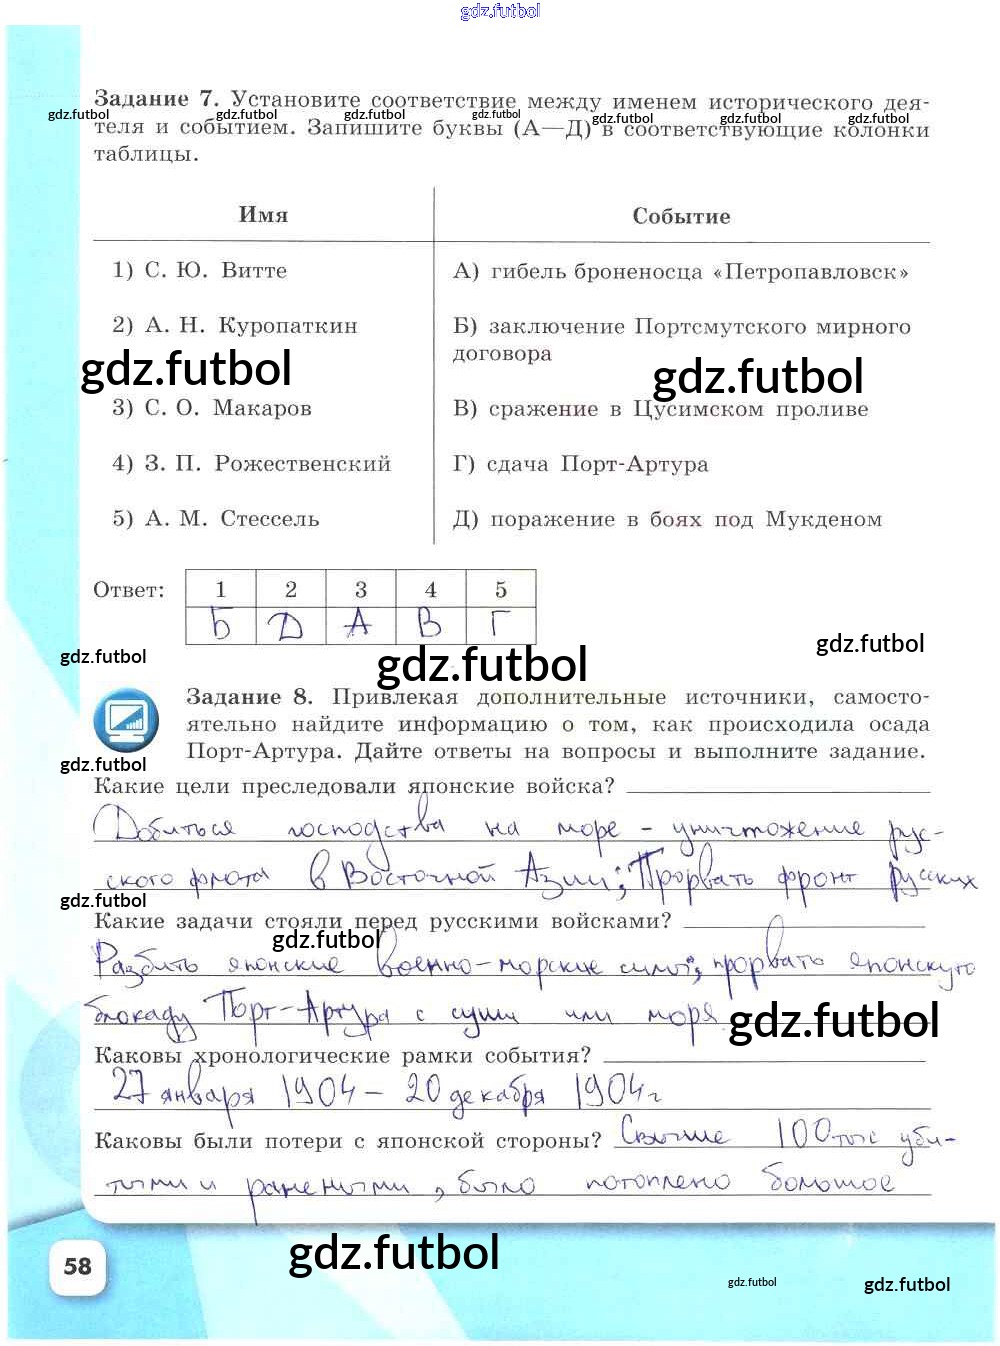 gdz.futbol
Задание 7. Установите соответствие между именем исторического дея-
gdz.futbol gdz.futbol gdz.futbol gdz.futbol gdz.futbol gdz.futbol gdz.futbol
теля и событием. Запишите буквы (А—Д) в соответствующие колонки
таблицы.
Имя Событие
1) С. Ю. Витте А) гибель броненосца «Петропавловск»
2) А. Н. Куропаткин Б) заключение Портсмутского мирного
договора
gdz.futbol gdz.futbol
3) С. О. Макаров В) сражение в Цусимском проливе
4) З. П. Рожественский Г) сдача Порт-Артура
5) А. М. Стессель Д) поражение в боях под Мукденом
Ответ: 1 2 3 4 5
Б Д А В Г
gdz.futbol gdz.futbol gdz.futbol
Задание 8. Привлекая дополнительные источники, самосто-
ятельно найдите информацию о том, как происходила осада
Порт-Артура. Дайте ответы на вопросы и выполните задание.
gdz.futbol
Какие цели преследовали японские войска?
Добиться господства на море - уничтожение рус-
ского флота в Восточной Азии; Прорвать фронт русских
gdz.futbol
Какие задачи стояли перед русскими войсками?
gdz.futbol
Разбить японские военно-морские силы; прорвать японскую
блокаду Порт-Артура с суши или моря
gdz.futbol
Каковы хронологические рамки события?
27 января 1904 - 20 декабря 1904 г
Каковы были потери с японской стороны? Свыше 100 тыс уби-
тыми и ранеными, было потоплено большое
58
gdz.futbol
gdz.futbol gdz.futbol